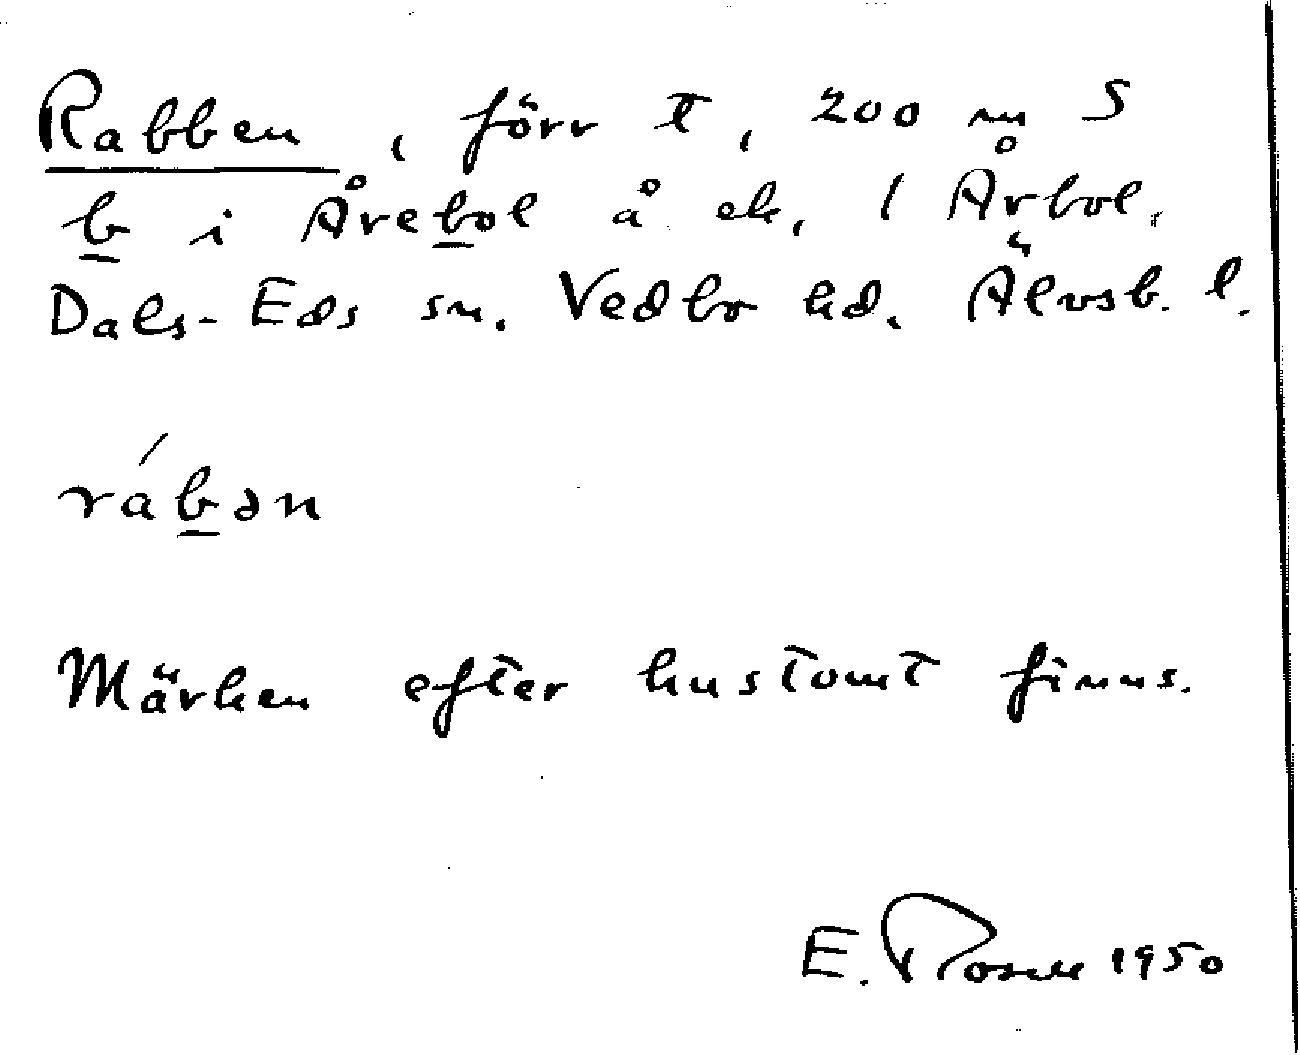 Rabben, förr t, 200 m S
b i Årebol å ek. 1 Årbol,
Dals-Eds sn. Vedbo hd. Älvsb. l.
rábən
Märken efter hustomt finns.
E. 1950